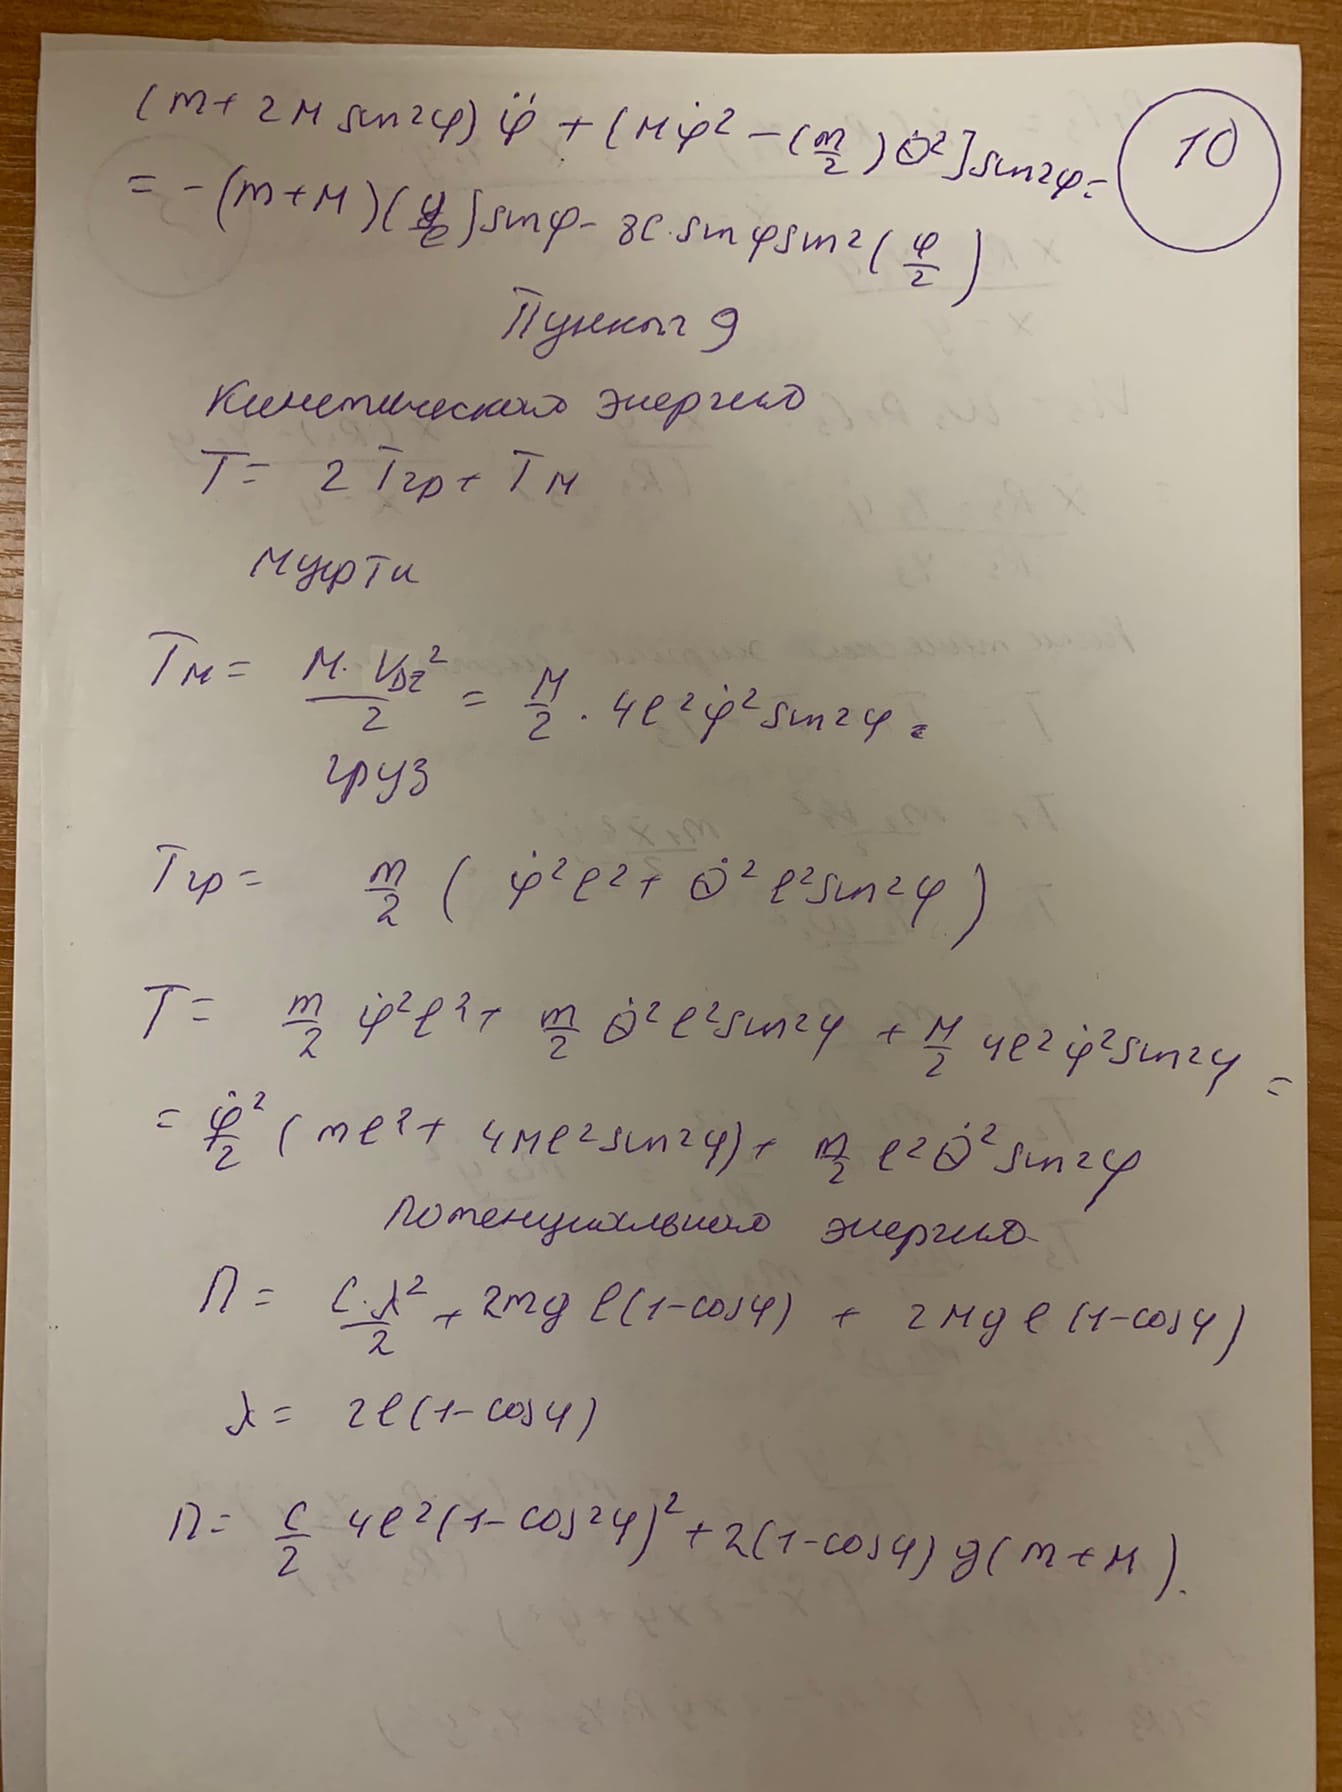 (m + 2M sin²φ) φ̈ + [Mφ̇² − (m/2) θ̇²] sin2φ =
= −(m+M)(g/ℓ) sinφ − 8C·sinφ sin²(φ/2)
10
Пункт 9
Кинетическая энергия
T = 2 Tгр + Tм
Муфты
Tм = M·V_Dz²/2 = M/2 · 4ℓ²φ̇² sin²φ =
груз
Tгр = m/2 (φ̇²ℓ² + θ̇²ℓ² sin²φ)
T = m/2 φ̇²ℓ² + m/2 θ̇²ℓ² sin²φ + M/2 4ℓ²φ̇² sin²φ =
= φ̇²/2 (mℓ² + 4Mℓ² sin²φ) + m/2 ℓ²θ̇² sin²φ
Потенциальная энергия
П = C·λ²/2 + 2mgℓ(1−cosφ) + 2Mgℓ(1−cosφ)
λ = 2ℓ(1−cosφ)
П = C/2 4ℓ²(1−cos²φ)² + 2(1−cosφ) g(m+M).